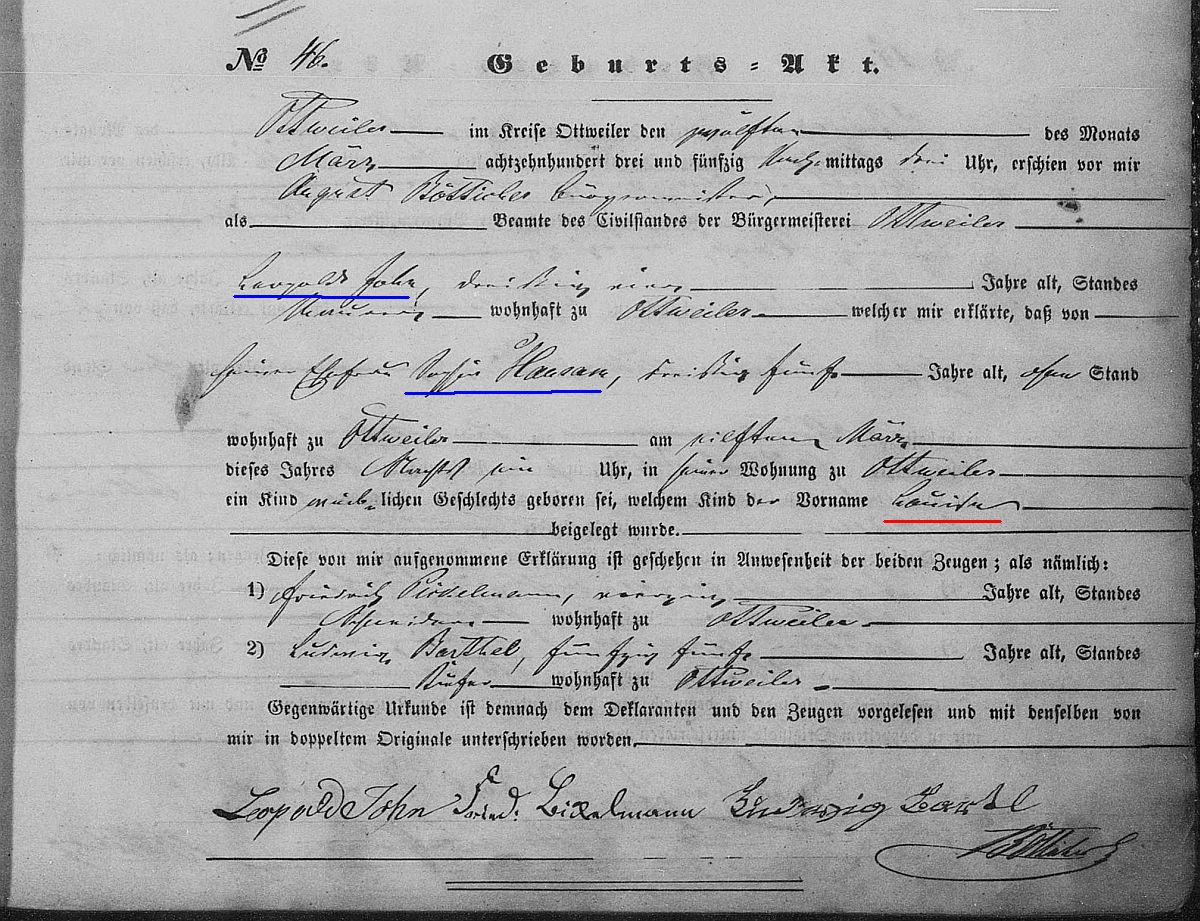 No 46. Geburts-Akt.
Ottweiler im Kreise Ottweiler den zwölften des Monats
März achtzehnhundert drei und fünfzig Nachmittags drei Uhr, erschien vor mir
August Bötticher Bürgermeister,
als Beamte des Civilstandes der Bürgermeisterei Ottweiler
Leopold John, dreißig vier Jahre alt, Standes
Maurer wohnhaft zu Ottweiler welcher mir erklärte, daß von
seiner Ehefrau Sophie, dreißig fünf Jahre alt, ohne Stand
wohnhaft zu Ottweiler am eilften März
dieses Jahres Nachts ein Uhr, in seiner Wohnung zu Ottweiler
ein Kind weiblichen Geschlechts geboren sei, welchem Kind der Vorname Louise
beigelegt wurde.
Diese von mir aufgenommene Erklärung ist geschehen in Anwesenheit der beiden Zeugen; als nämlich:
1) Friedrich, vierzig Jahre alt, Standes
Schneider wohnhaft zu Ottweiler
2) Ludwig Barthel, fünfzig fünf Jahre alt, Standes
Küfer wohnhaft zu Ottweiler
Gegenwärtige Urkunde ist demnach dem Deklaranten und den Zeugen vorgelesen und mit denselben von
mir in doppeltem Originale unterschrieben worden.
Leopold John Fried. Ludwig Bartel
Bötticher